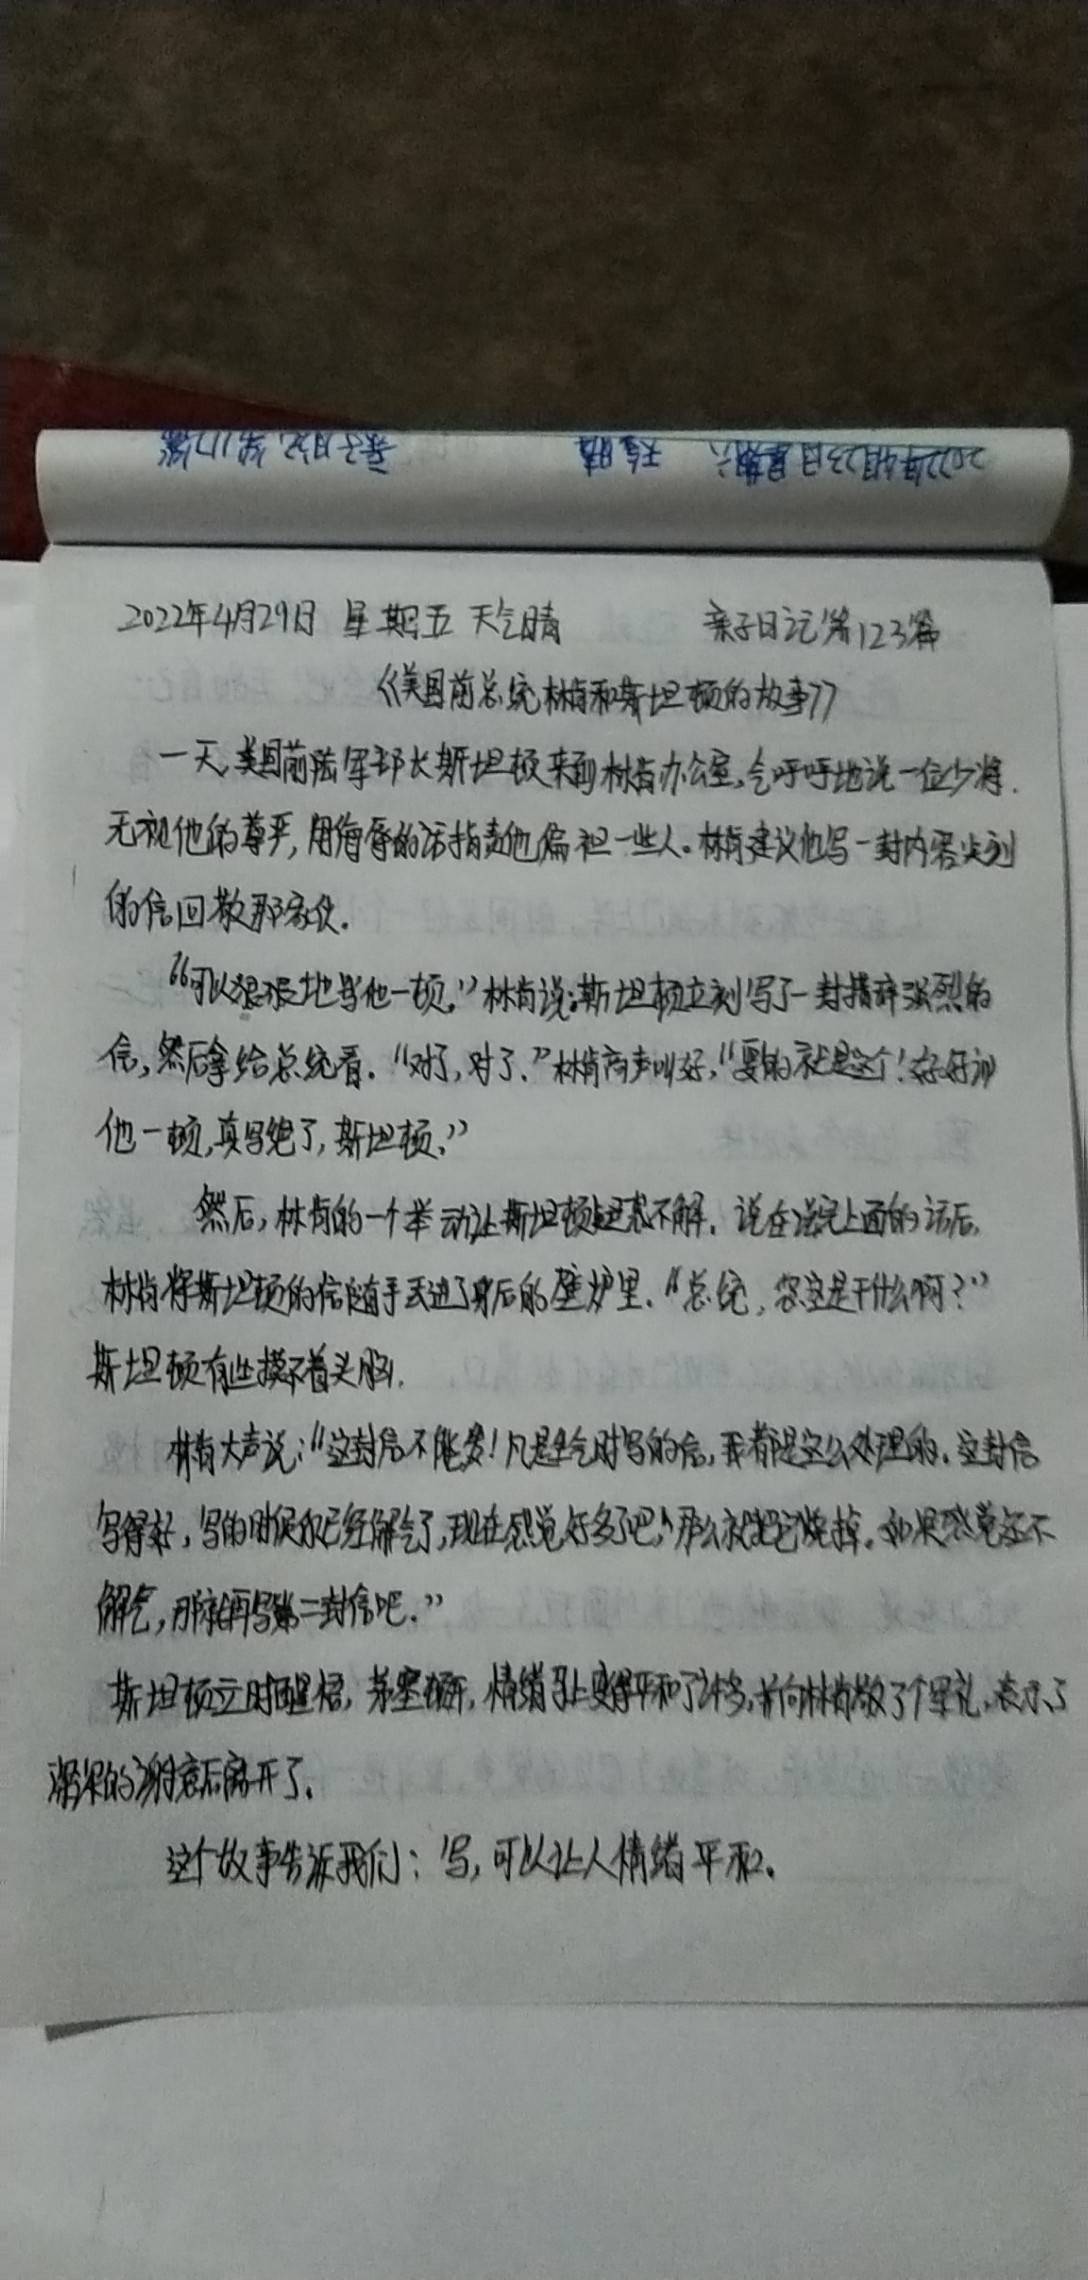 2022年4月23日星期六 天气晴 亲子日记第117篇
2022年4月29日 星期五 天气晴 亲子日记第123篇
《美国前总统林肯和斯坦顿的故事》
一天,美国前陆军部长斯坦顿来到林肯办公室,气呼呼地说一位少将.
无视他的尊严,用侮辱的话指责他偏袒一些人。林肯建议他写一封内容尖刻
的信回敬那家伙.
“可以狠狠地骂他一顿.”林肯说:斯坦顿立刻写了一封措辞强烈的
信,然后拿给总统看.“对了,对了.”林肯高声叫好,“要的就是这个!好好训
他一顿,真写绝了,斯坦顿.”
然后,林肯的一个举动让斯坦顿疑惑不解.说在说完上面的话后.
林肯将斯坦顿的信随手丢进了身后的壁炉里.“总统,您这是干什么啊?”
斯坦顿有些摸不着头脑.
林肯大声说:“这封信不能发!凡是生气时写的信,我都是这么处理的.这封信
写得好,写的时候你已经解气了,现在感觉好多了吧,那么就把它烧掉.如果感觉还不
解气,那就再写第二封信吧.”
斯坦顿立时醒悟,茅塞顿开,情绪马上变得平和了许多,并向林肯敬了个军礼.表示了
深深的谢意后离开了.
这个故事告诉我们:写,可以让人情绪平和.